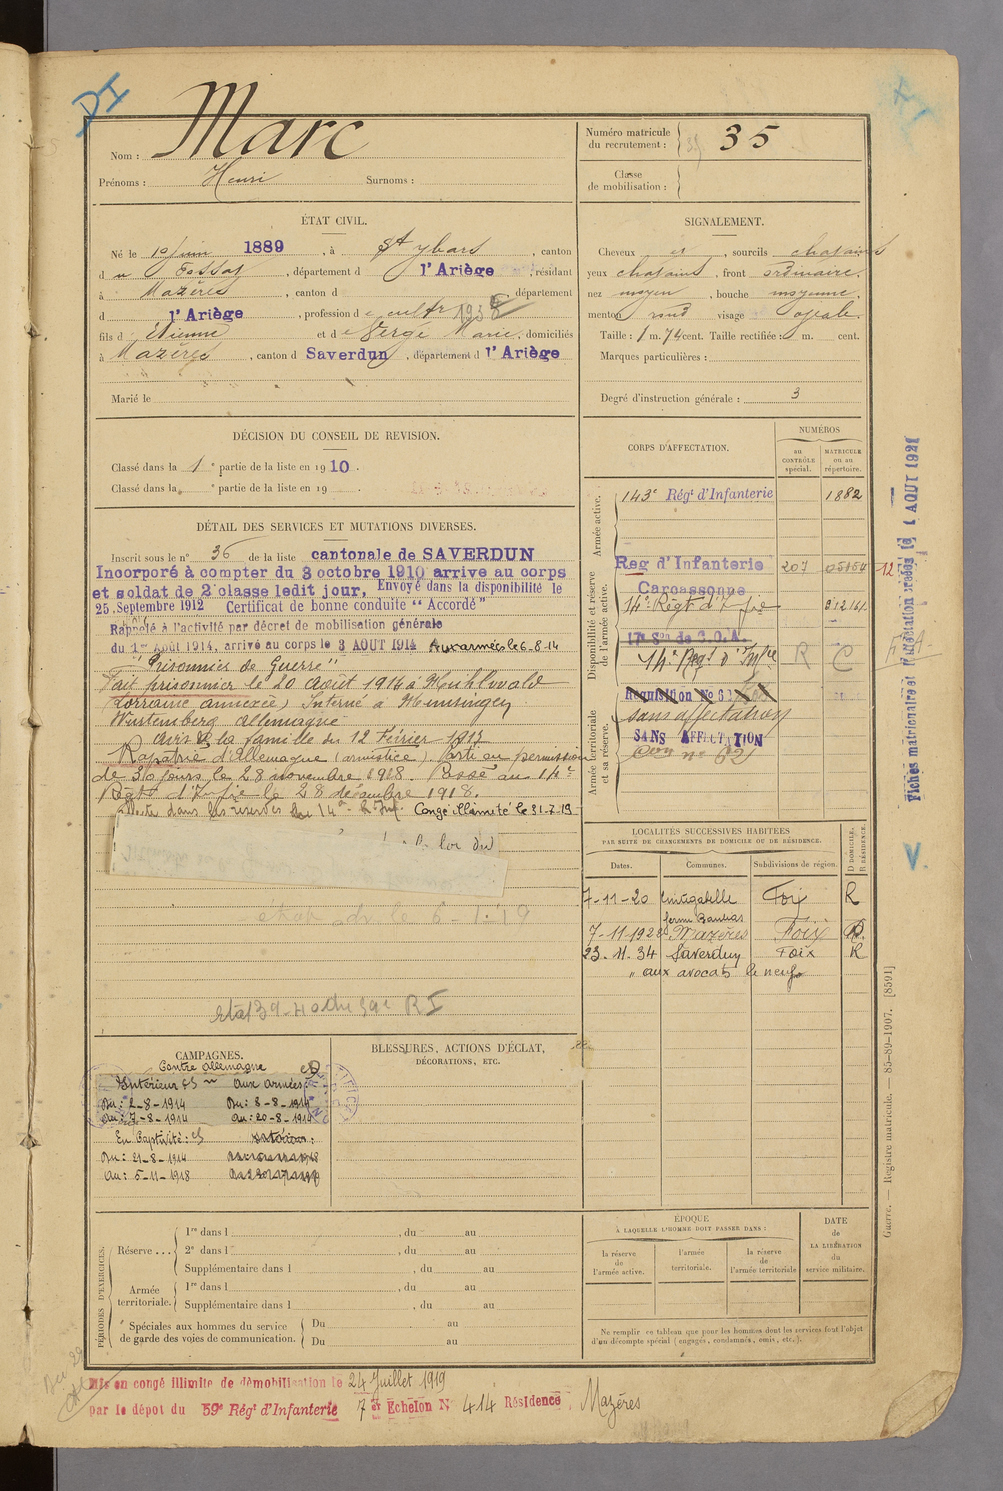 DI
Marc
Nom :
Prénoms : Henri Surnoms :
Numéro matricule
du recrutement : 35
Classe
de mobilisation :
ÉTAT CIVIL.
Né le 10 juin 1889, à St Ybars, canton
du Fossat, département d l'Ariège, résidant
à Mazères, canton d , département
d l'Ariège, profession de cultr 1938
fils d'Etienne et de Vergé Marie, domiciliés
à Mazères, canton d Saverdun, département d l'Ariège
Marié le
SIGNALEMENT.
Cheveux et, sourcils chatains
yeux chatains, front ordinaire.
nez moyen, bouche moyenne,
menton rond visage ovale.
Taille : 1 m. 74 cent. Taille rectifiée : m. cent.
Marques particulières :
Degré d'instruction générale : 3
DÉCISION DU CONSEIL DE REVISION.
Classé dans la 1e partie de la liste en 1910.
Classé dans la e partie de la liste en 19 .
DÉTAIL DES SERVICES ET MUTATIONS DIVERSES.
Inscrit sous le n° 36 de la liste cantonale de SAVERDUN
Incorporé à compter du 3 octobre 1910 arrive au corps
et soldat de 2e classe ledit jour, Envoyé dans la disponibilité le
25 Septembre 1912 Certificat de bonne conduite "Accordé"
Rappelé à l'activité par décret de mobilisation générale
du 1er Août 1914, arrivé au corps le 3 AOUT 1914 Aux armées le 6.8.14
"Prisonnier de Guerre"
Fait prisonnier le 20 Août 1914 à Muhlwald
(Lorraine annexée) Interné à Munsingen
Wurtemberg Allemagne
Avis de la famille du 12 Février 1917
Rapatrié d'Allemagne (armistice). Parti en permission
de 30 jours le 28 novembre 1918. Passé au 14e
Régt d'Infie le 28 décembre 1918.
Affecté dans les réserves du 14e R. Inf Congé illimité le 31-7-19
CORPS D'AFFECTATION.
NUMÉROS
au
CONTRÔLE
spécial.
MATRICULE
ou au
répertoire.
Armée active.
143e Régt d'Infanterie 1882
Disponibilité et réserve
de l'armée active.
Reg d'Infanterie 207
Carcassonne
14e Régt d'Infie
17e Son de C.O.A.
14e Regt d'Infie R C
Armée territoriale
et sa réserve.
Requisition No 62
Sans affectation
SANS AFFECTATION
LOCALITÉS SUCCESSIVES HABITÉES
PAR SUITE DE CHANGEMENTS DE DOMICILE OU DE RÉSIDENCE.
Dates. Communes. Subdivisions de région. D DOMICILE. R RÉSIDENCE.
7-11-20 Cintegabelle Foix R
7-11-1928 Mazères Foix R
23.11.34 Saverdun Foix R
" aux avocats le neuf
CAMPAGNES.
Contre Allemagne
Intérieur CS aux armées :
Du : 2-8-1914 Du : 8-8-1914
Au : 7-8-1914 Au : 20-8-1914
En Captivité : CS
Du : 21-8-1914
Au : 5-11-1918
BLESSURES, ACTIONS D'ÉCLAT,
DÉCORATIONS, ETC.
PÉRIODES D'EXERCICES.
Réserve ...
1re dans l , du au
2e dans l , du au
Supplémentaire dans l , du au
Armée
territoriale.
1re dans l , du au
Supplémentaire dans l , du au
Spéciales aux hommes du service
de garde des voies de communication.
Du au
Du au
ÉPOQUE
À LAQUELLE L'HOMME DOIT PASSER DANS :
la réserve
de
l'armée active.
l'armée
territoriale.
la réserve
de
l'armée territoriale
DATE
de
LA LIBÉRATION
du
service militaire.
Ne remplir ce tableau que pour les hommes dont les services font l'objet
d'un décompte spécial (engagés, condamnés, omis, etc.).
Guerre. — Registre matricule. — 85-89-1907. [8591]
Mis en congé illimité de démobilisation le 24 Juillet 1919
par le dépot du 59e Régt d'Infanterie 7e Echelon N° 414 Résidence Mazères